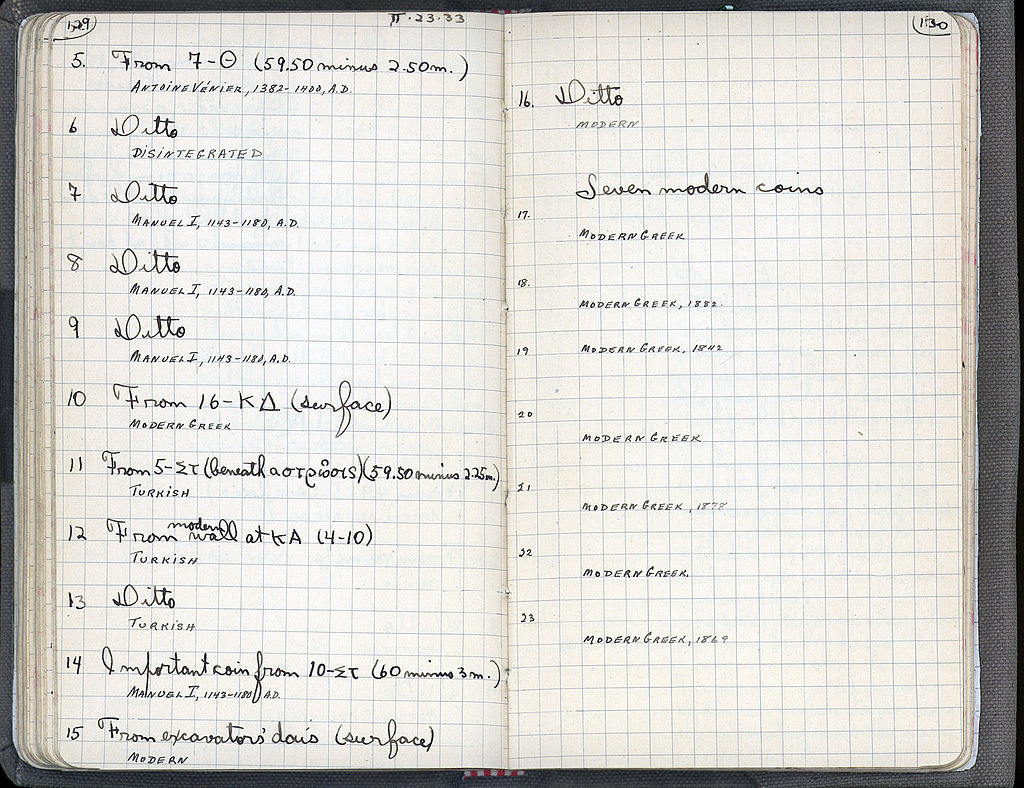 129
II·23·33
5. From 7-Θ (59.50 minus 2.50 m.)
ANTOINE VÉNIER, 1382-1400, A.D.
6 Ditto
DISINTEGRATED
7 Ditto
MANUEL I, 1143-1180, A.D.
8 Ditto
MANUEL I, 1143-1180, A.D.
9 Ditto
MANUEL I, 1143-1180, A.D.
10 From 16-ΚΔ (surface)
MODERN GREEK
11 From 5-Στ (beneath a στρῶσις) (59.50 minus 2.25m.)
TURKISH
12 From modern wall at ΚΑ (4-10)
TURKISH
13 Ditto
TURKISH
14 Important coin from 10-Στ (60 minus 3 m.)
MANUEL I, 1143-1180 A.D.
15 From excavators' dais (surface)
MODERN
130
16. Ditto
MODERN
Seven modern coins
17.
MODERN GREEK
18.
MODERN GREEK, 1882.
19 MODERN GREEK, 1842
20
MODERN GREEK
21
MODERN GREEK, 1878
22
MODERN GREEK.
23
MODERN GREEK, 1869